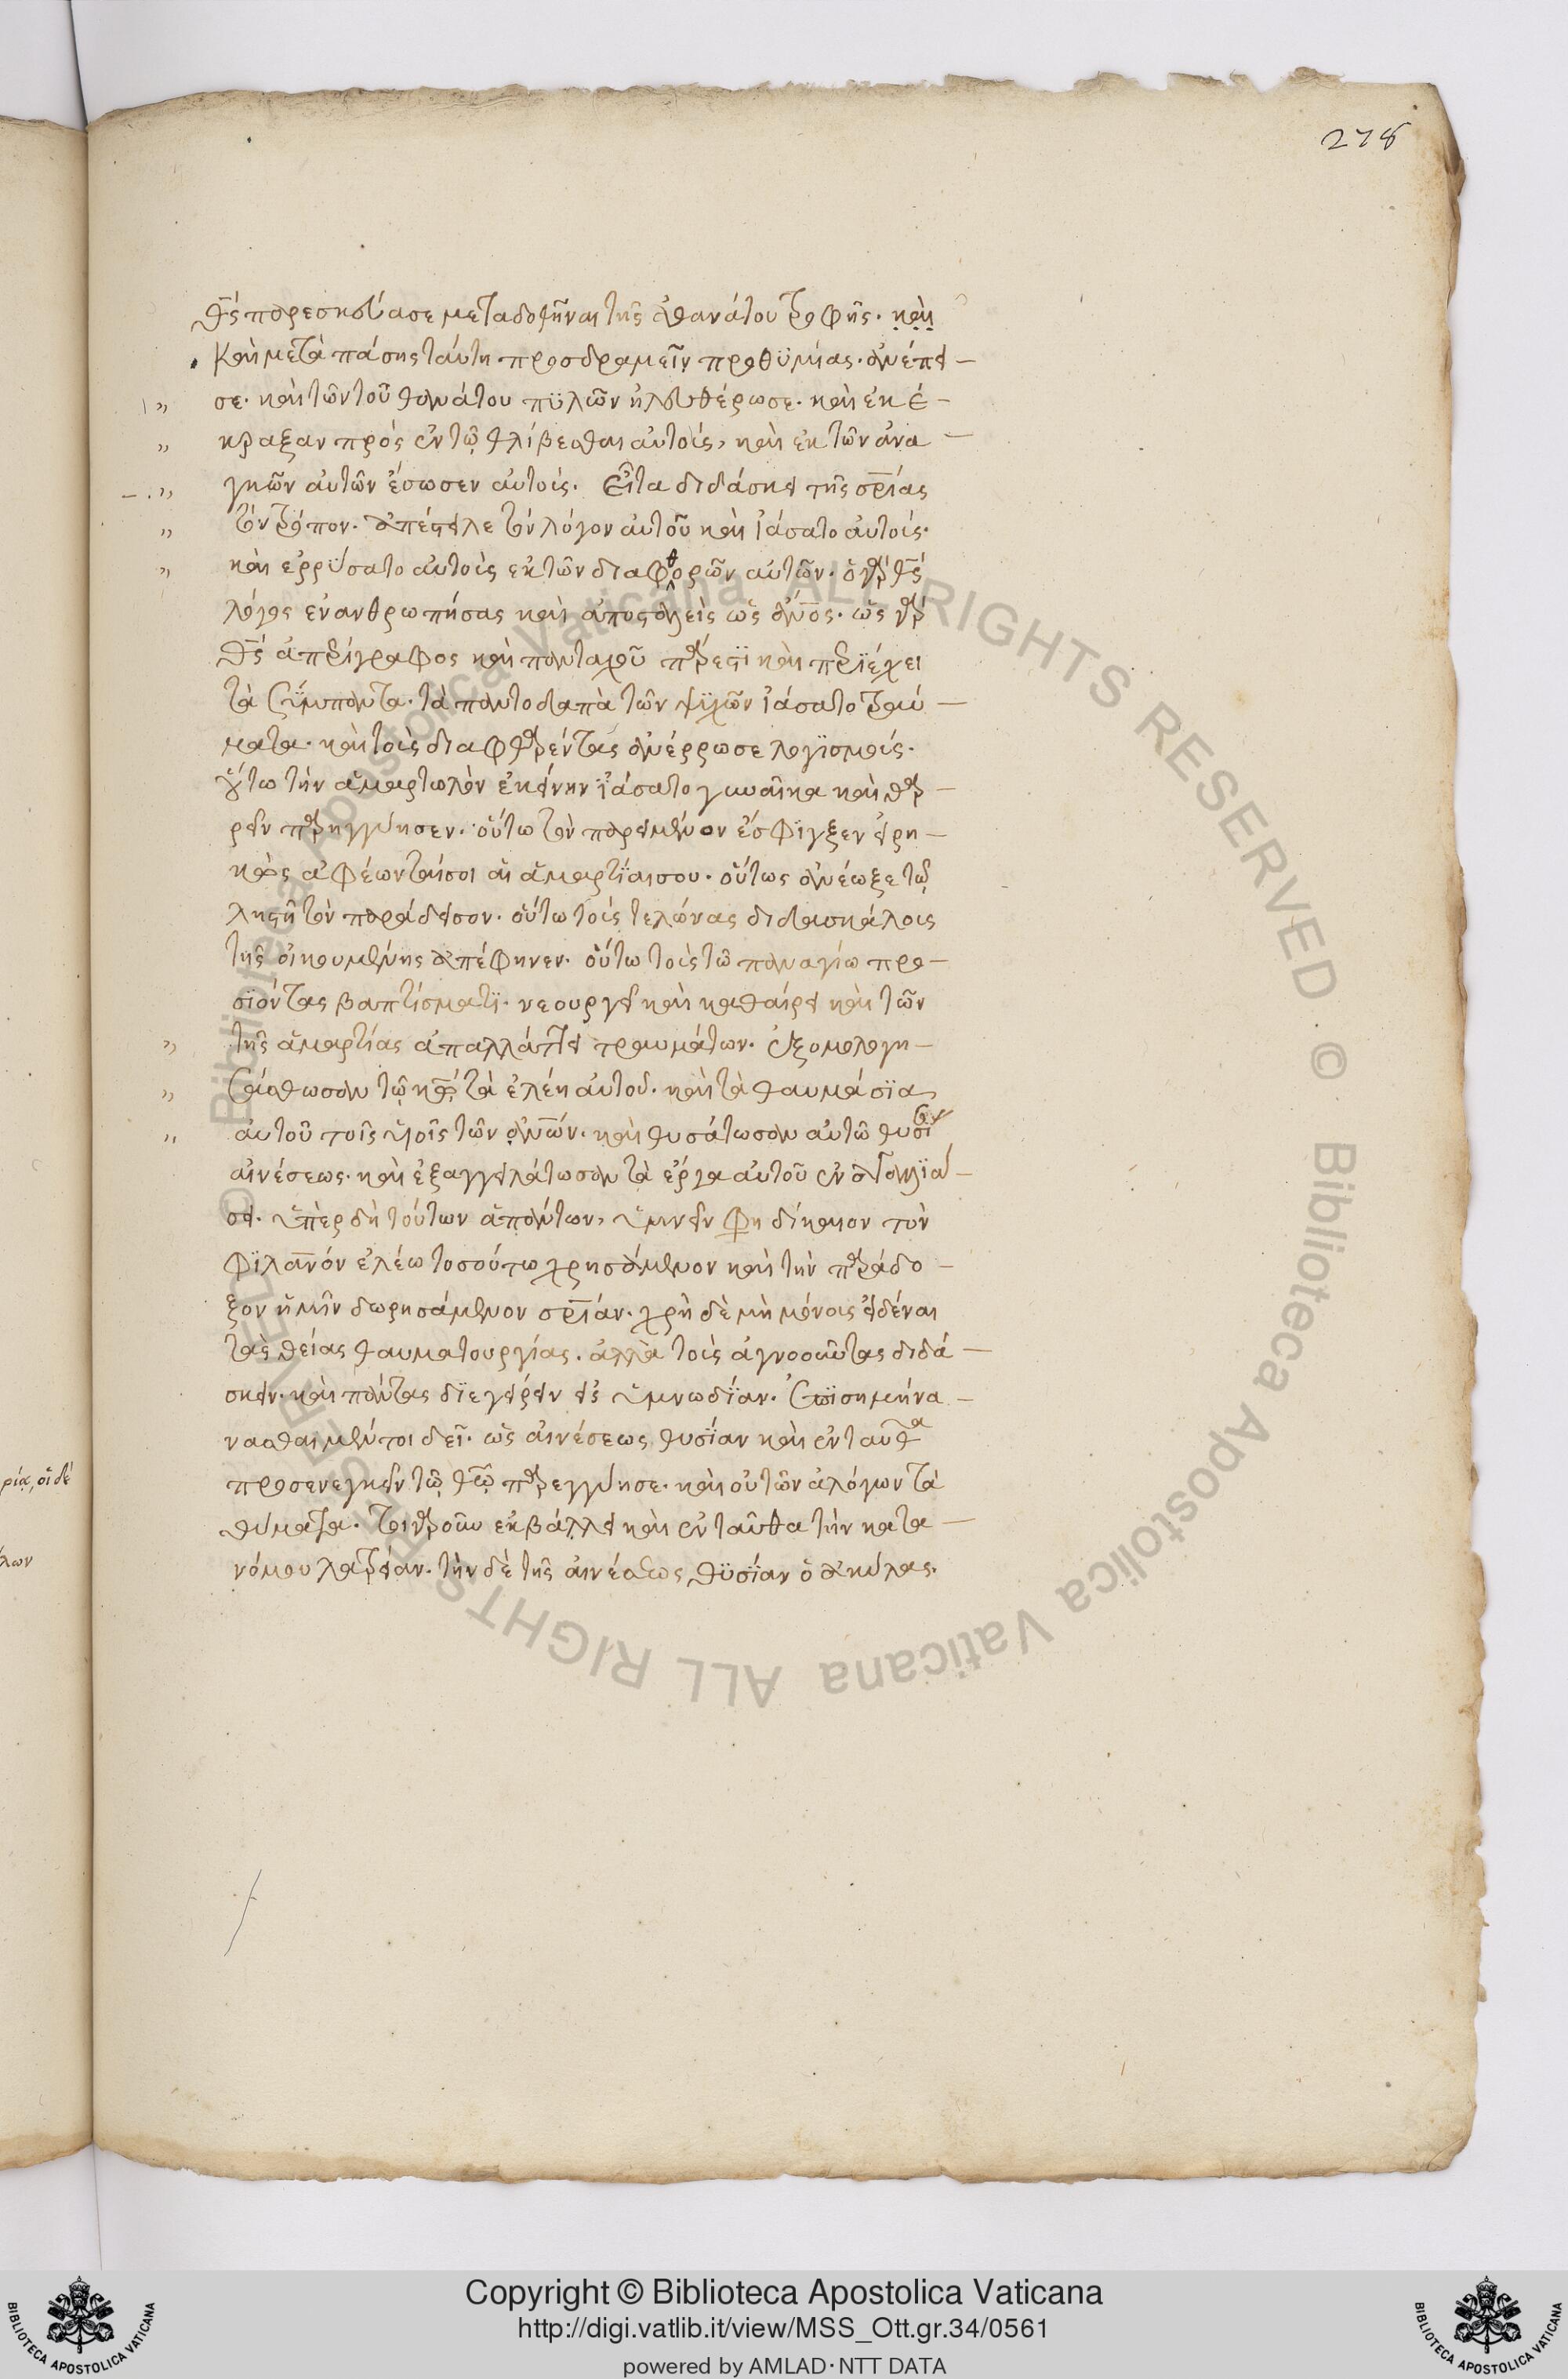 278
θς παρεσκεύασε μεταδοθῆναι τῆς ἀθανάτου τροφῆς. καὶ
καὶ μετὰ πάσης ταύτη προσδραμεῖν προθϋμίας. ἀνέπει-
σε. καὶ τῶν τοῦ θανάτου πϋλῶν ἠλευθέρωσε. καὶ ἐκέ-
κραξαν πρὸς ἐν τῷ θλίβεσθαι αὐτοὺς, καὶ ἐκ τῶν ἀνα-
γκῶν αὐτῶν ἔσωσεν αὐτούς. Εἶτα διδάσκει τῆς σρίας
τὸν τρόπον. ἀπέστειλε τὸν λόγον αὐτοῦ καὶ ἰάσατο αὐτούς.
καὶ ερρΰσατο αὐτοὺς εκ τῶν διαφθορῶν αὐτῶν. ὁ γὰρ θς
λόγος ενανθρωπήσας καὶ ἀποσταλεὶς ὡς ἄνος. ὡς γὰρ
θς ἀπερίγραφος καὶ πανταχοῦ πάρεστϊ καὶ περϊέχει
τὰ σΰμπαντα. τὰ παντοδαπὰ τῶν ψϋχῶν ἰάσατο τραύ-
ματα. καὶ τοὺς διαφθαρέντας ἀνέρρωσε λογϊσμούς.
οὕτω τὴν ἁμαρτωλὸν ἐκείνην ἰάσατο γυναῖκα καὶ θαρ-
ρεῖν παρηγγύησεν. οὕτω τὸν παρειμένον ἐσφϊγξεν εἰρη-
κὼς ἀφέωνταί σοι αἱ ἁμαρτΐαι σου. οὕτως ἀνέωξε τῷ
ληστῆ τὸν παράδεισον. οὕτω τοὺς τελώνας διδασκάλους
τῆς οἰκουμένης ἀπέφηνεν. οὕτω τοὺς τῶ παναγίω προ-
σϊόντας βαπτίσματϊ. νεουργεῖ καὶ καθαίρει καὶ τῶν
τῆς ἁμαρτίας ἀπαλλάττει τραυμάτων. ἐξομολογη-
σάσθωσαν τῷ κω τὰ ἐλέη αὐτοῦ. καὶ τὰ θαυμάσϊα
αὐτοῦ τοῖς υἱοῖς τῶν ἀνων. καὶ θυσάτωσαν αὐτῶ θυσί
αἰνέσεως. καὶ ἐξαγγειλάτωσαν τὰ ἐργα αὐτοῦ ἐν ἀγαλλϊά-
σει. ὑπὲρ δὴ τούτων ἁπάντων, ὑμνεῖν φη δίκαιον τὸν
φϊλανόν ἐλέω τοσούτω χρησάμενον καὶ τὴν παράδο-
ξον ἡμῖν δωρησάμενον σρίαν. χρὴ δὲ μὴ μόνους εἰδέναι
τὰς θείας θαυματουργίας. ἀλλὰ τοὺς ἀγνοοῦντας διδά-
σκειν. καὶ πάντας δϊεγείρειν εἰς ὑμνωδΐαν. ἐπισημήνα-
νασθαι μέντοι δεῖ. ὡς αἰνέσεως θυσΐαν καὶ ἐνταῦθα
προσενεγκεῖν τῷ θῷ παρεγγύησε. καὶ οὐ τῶν ἀλόγων τὰ
θύματα. τοιγαροῦν εκβάλλει καὶ ἐνταῦθα τὴν κατα-
νόμου λατρείαν. τὴν δὲ τῆς αἰνέσεως θϋσΐαν ὁ ἀκύλας.
ρία, οἱ δὲ
λων
© Biblioteca Apostolica Vaticana ALL RIGHTS RESERVED · © Biblioteca Apostolica Vaticana ALL RIGHTS RESERVED
Copyright © Biblioteca Apostolica Vaticana
http://digi.vatlib.it/view/MSS_Ott.gr.34/0561
powered by AMLAD·NTT DATA
BIBLIOTECA APOSTOLICA VATICANA
BIBLIOTECA APOSTOLICA VATICANA